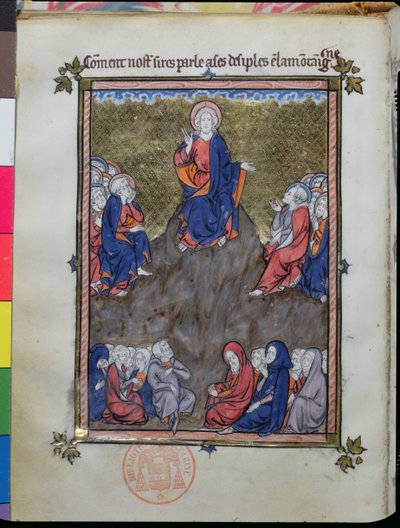 Cõment nost sires parle a ses desiples ẽ la mõtaĩgne